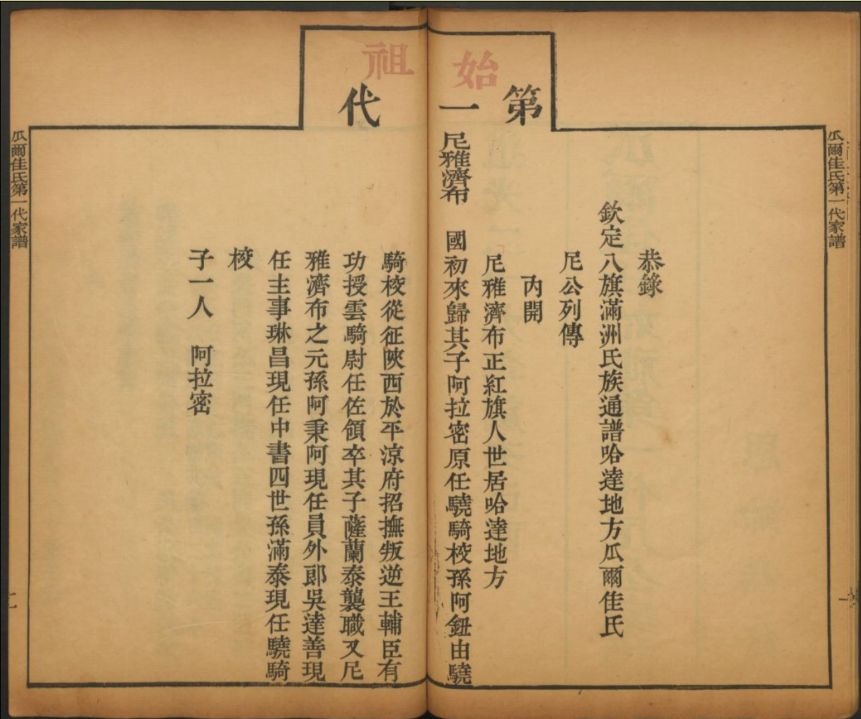 始祖
第一代
瓜爾佳氏第一代家譜
恭錄
欽定八旗滿洲氏族通譜哈達地方瓜爾佳氏
尼公列傳
內開
尼雅濟布正紅旗人世居哈達地方
尼雅濟布 國初來歸其子阿拉密原任驍騎校孫阿鈕由驍
騎校從征陝西於平涼府招撫叛逆王輔臣有
功授雲騎尉任佐領卒其子薩蘭泰襲職又尼
雅濟布之元孫阿秉阿現任員外郎吳達善現
任主事琳昌現任中書四世孫滿泰現任驍騎
校
子一人 阿拉密
瓜爾佳氏第一代家譜